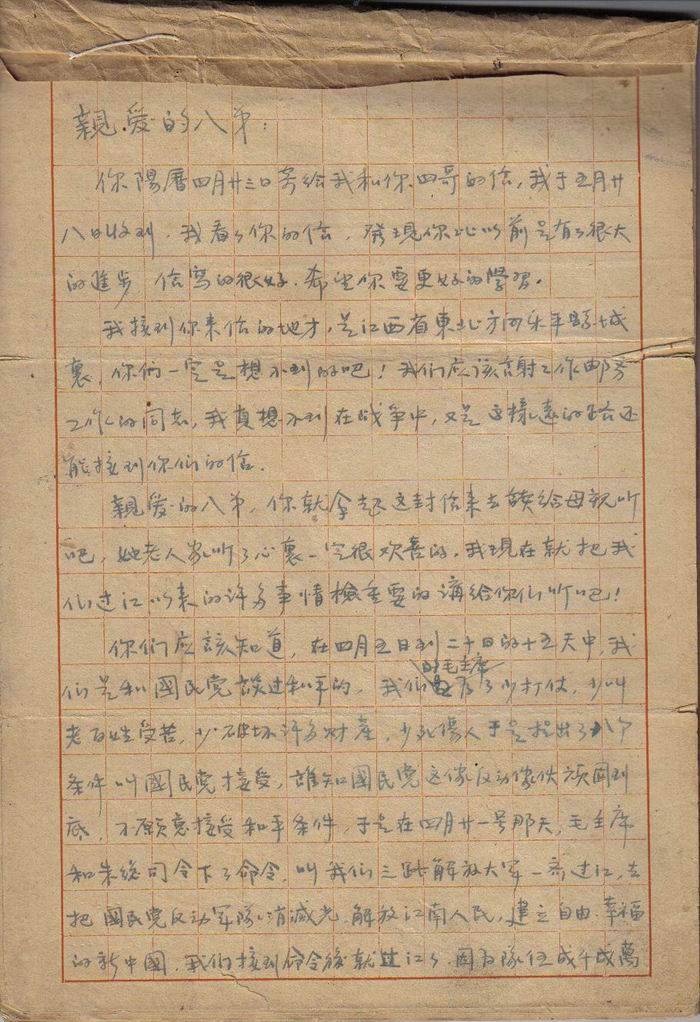 親愛的八弟：
你陽曆四月廿三日寄給我和你四哥的信，我于五月廿
八日收到，我看了你的信，發現你比以前是有了很大
的進步，信寫的很好，希望你要更好的學習。
我接到你来信的地方，是江西省東北方向乐平縣城
裏，你們一定是想不到的吧！我们应该謝謝作邮务
工作的同志，我真想不到在战争中，又是這樣遠的路还
能接到你們的信。
親爱的八弟，你就拿起这封信来去讀給母親听
吧，她老人家听了心裏一定很欢喜的，我現在就把我
们过江以来的许多事情檢重要的講給你们听吧！
你们应該知道，在四月五日到二十日的十五天中，我
们是和國民党談过和平的，我们的毛主席为了少打仗，少叫
老百姓受苦，少破坏许多财産，少死傷人于是提出了八个
条件叫國民党接受，誰知國民党这傢反动傢伙顽固到
底，不願意接受和平条件，于是在四月廿一号那天，毛主席
和朱总司令下了命令，叫我们三路解放大军一齐过江，去
把國民党反动军隊消滅光，解放江南人民，建立自由幸福
的新中國，我们接到命令後就过江了，因为隊伍成千成萬